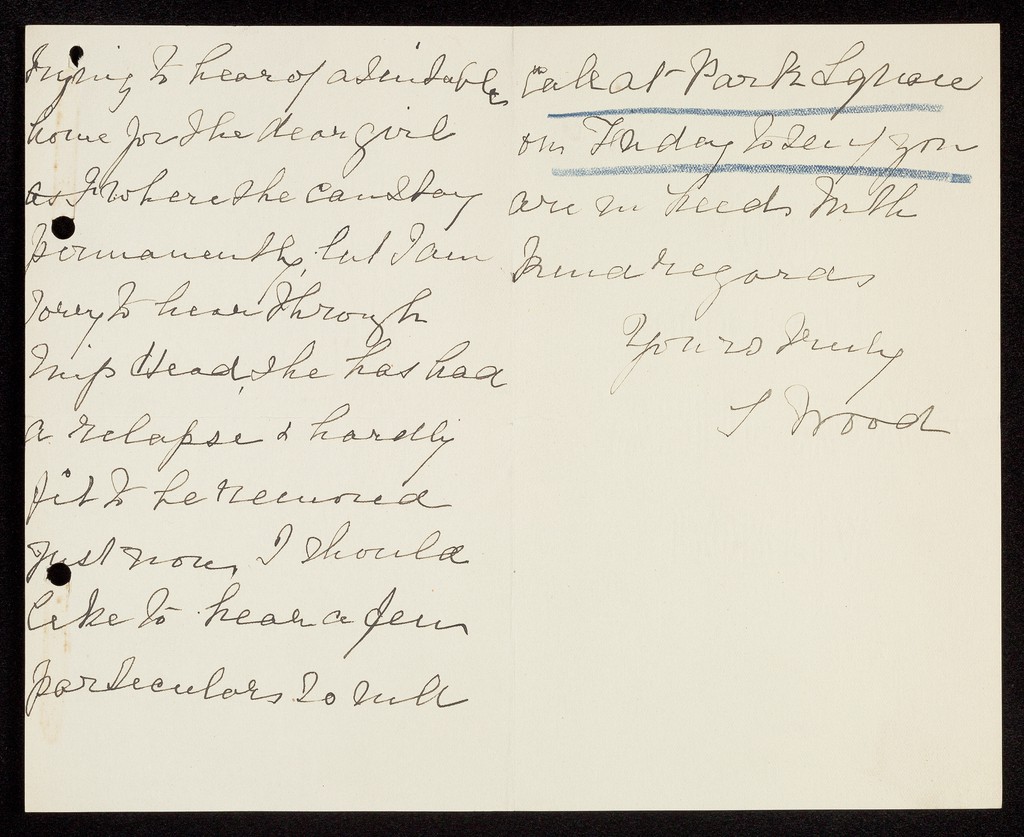 trying to hear of a suitable
home for the dear girl
as to where she can stay
permanently, but I am
sorry to hear through
Miss Head, she has had
a relapse & hardly
fit to be removed
just now, I should
like to hear a few
particulars so will
call at Park Square
on Friday to see if you
are in needs With
kind regards
Yours truly
S Wood